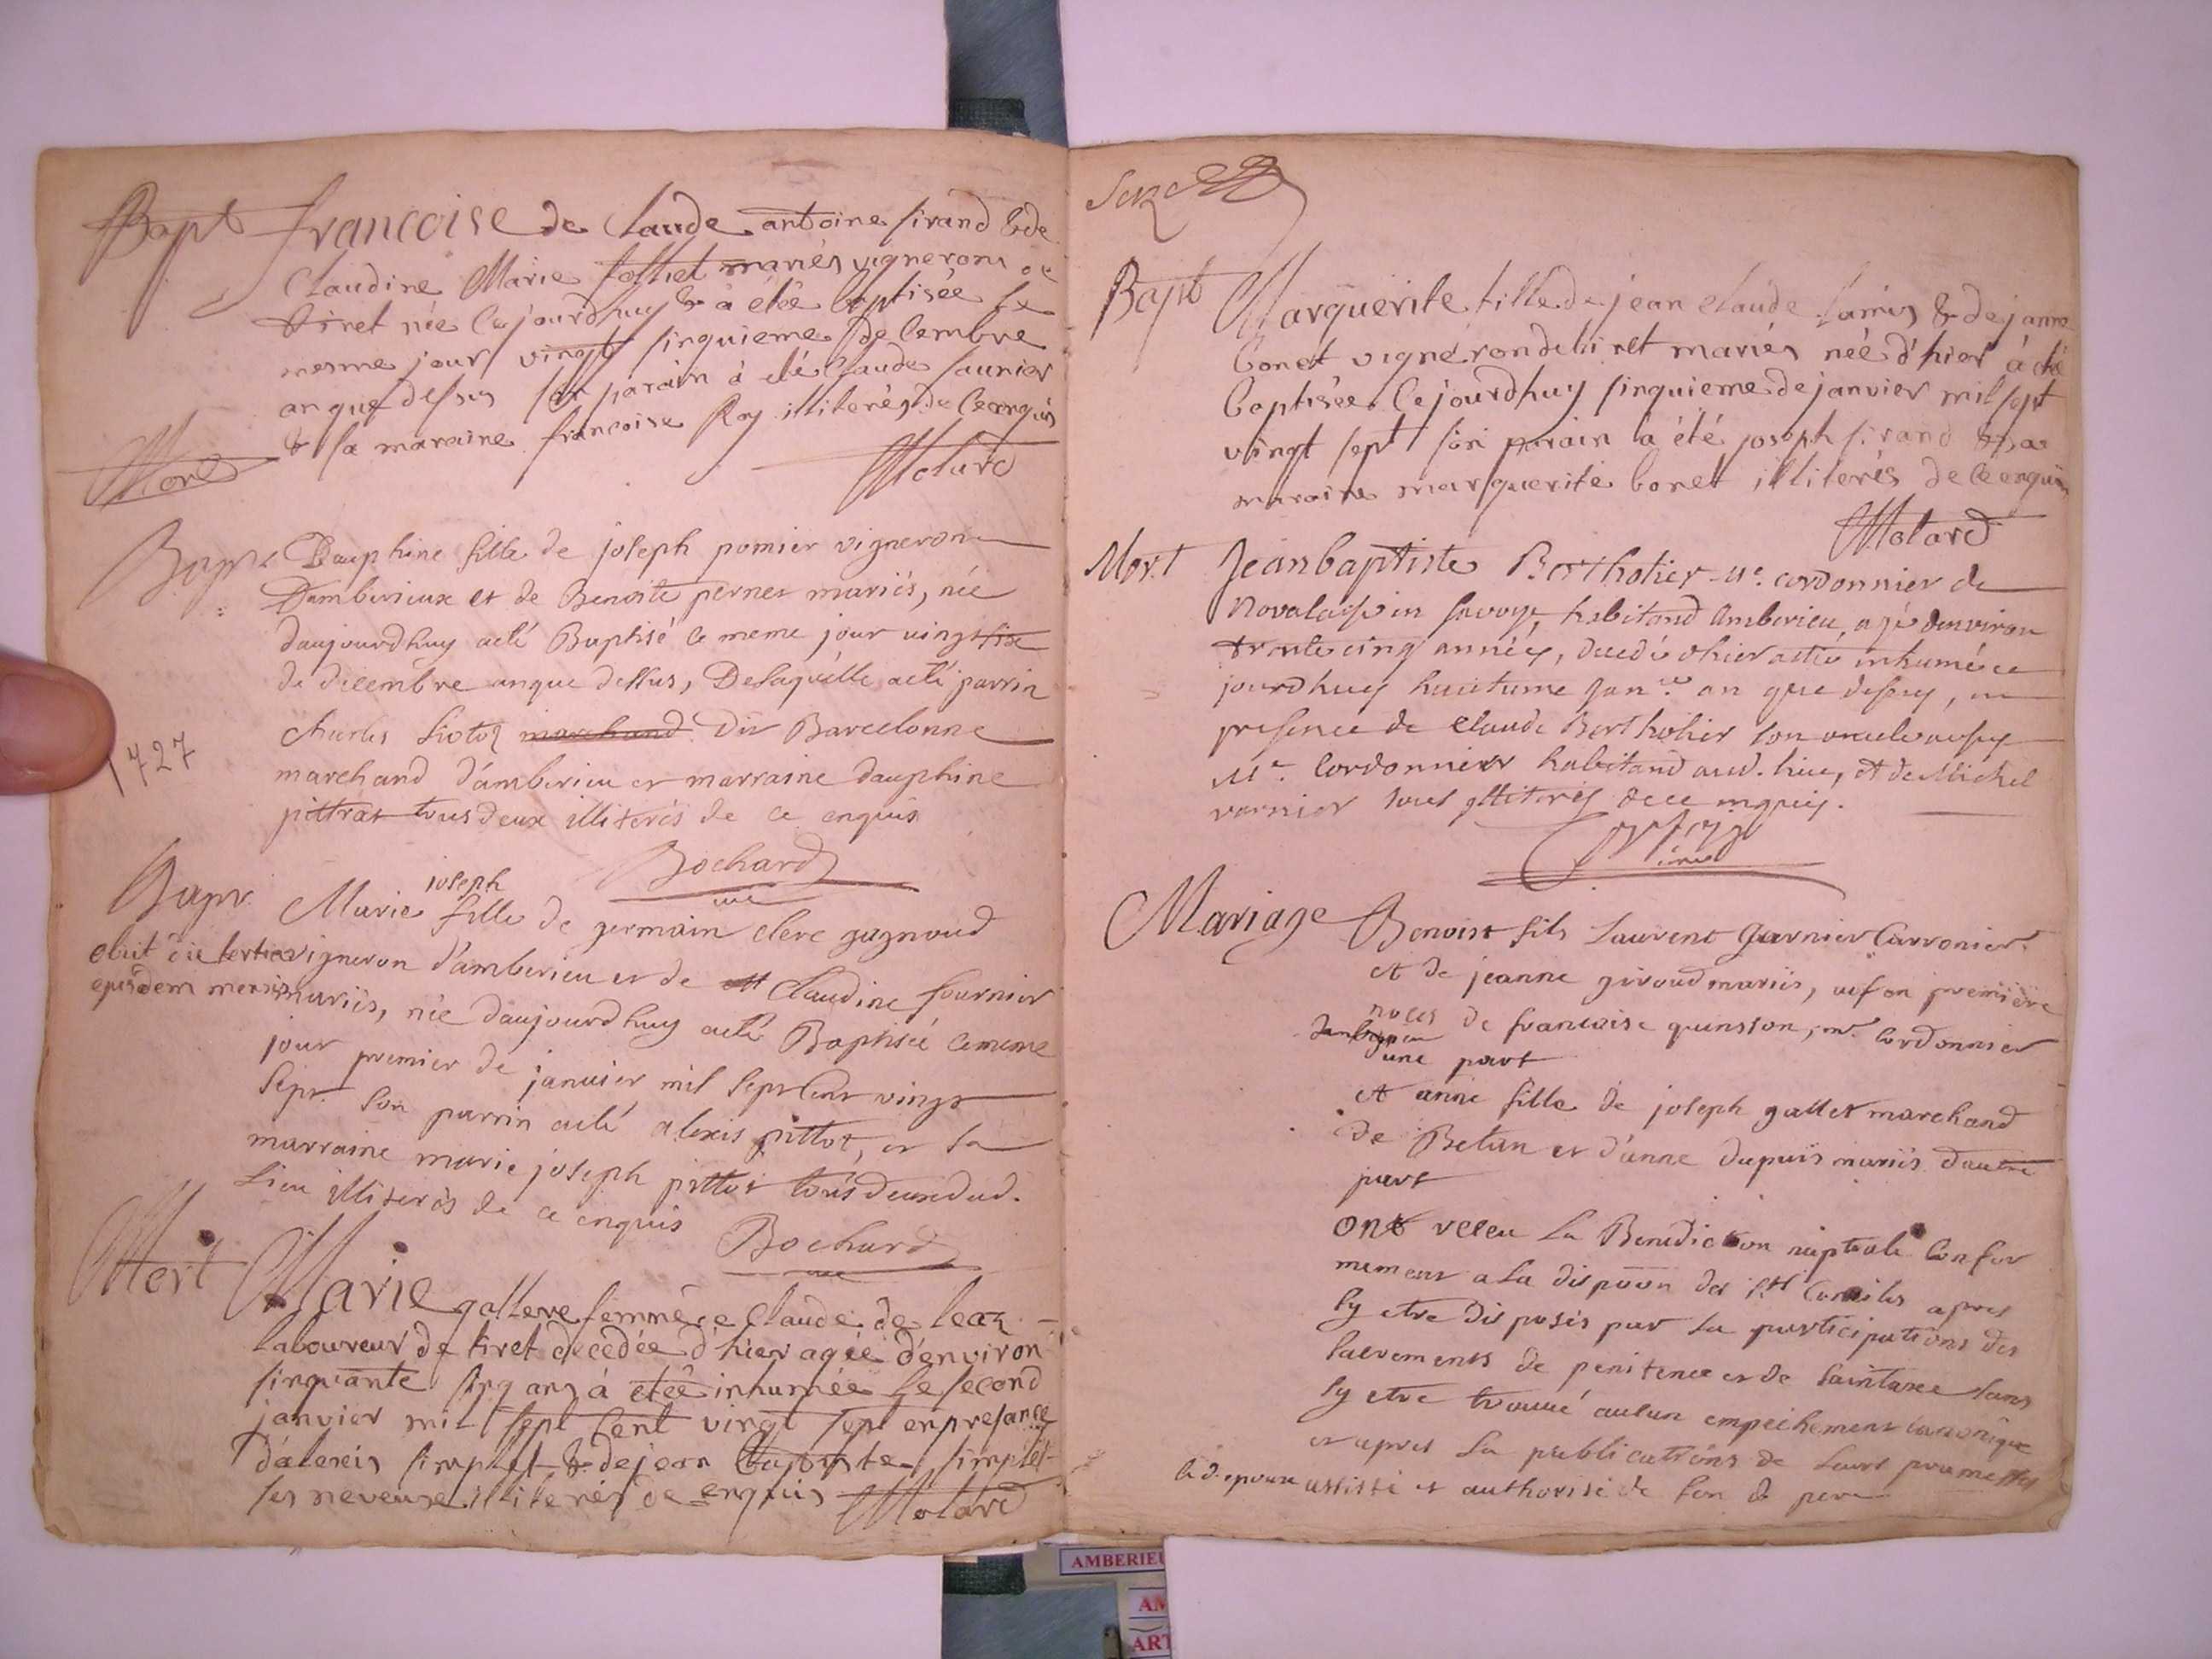 Bapt francoise de Claude antoine sirand & de
Claudine Marie folliet mariés vignerons de
tiret née ce jourdhuy & a étée baptisée le
mesme jour vingt sinquieme decembre
an que dessus son parain à été Claude saunier
& sa maraine francoise Roy illiterés de ce enquis
Mort
Molard
Bapt Dauphine fille de joseph pomier vigneron
Damberieux et de Benoite pernet mariés, née
daujourdhuy aeté Baptisé le meme jour vingt six
de decembre anque dessus, De laquelle aeté parrin
charles marchand dit Barcelonne
marchand d'amberieu et marraine dauphine
pittrat tous deux illiterés de ce enquis
Bochard
1727
Bapt Marie joseph fille de germain clerc gagnoud
obiit die tertia vigneron d'amberieu et de Claudine fournier
ejusdem mensis mariés, née daujourdhuy aeté Baptisée le meme
jour premier de januier mil sept cent vingt
sept son parrin aeté alexis pittot, et sa
marraine marie joseph pittot tous deux dud.
Lieu illiterés de ce enquis
Bochard
Mort Marie gallere femme de Claude de
laboureur de tiret decedée d'hier agée d'environ
sinquante sinq ans à etée inhumée le second
janvier mil sept cent vingt sept en presance
d'alexis simplet & de jean baptiste simplet
ses neveux illiterés de enquis Molard
Bapt Marguerite fille de jean claude & de janne
bonet vigneron de tiret mariés née d'hier à été
baptisée ce jourdhuy sinquieme de janvier mil sept
vingt sept son parain à été joseph sirand & sa
maraine marguerite bonet illiterés de ce enquis
Molard
Mort Jean baptiste Bertholier Me. cordonnier de
Novalaise en savoye, habitand Amberieu, agé denviron
trente cinq années, decedé dhier a été inhumé ce
jourdhuy huitieme Janer. an que dessus, en
presence de Claude Bertholier son oncle aussy
Me. Cordonnier habitand aud. lieu, et de Michel
vernier tous illiterés de ce enquis.
Mariage Benoist fils Laurent Garnier Carronier
et de jeanne giroud mariés, vef en premiere
noces de francoise quinsson, me. Cordonnier
damberieu
d'une part
et anne fille de joseph gallet marchand
de Betan et d'anne dupuis mariés d'autre
part
ont receu la Benediction nuptiale confor
mement a la dispoon des Sts Conciles apres
sy etre disposés par la participations des
sacrements de penitence et de sainteté sans
sy etre trouué aucun empechement canonique
et apres la publications de leurs promesses
lad. epouse assistée et authorisée de son d pere
AMBERIEU
AM
ART